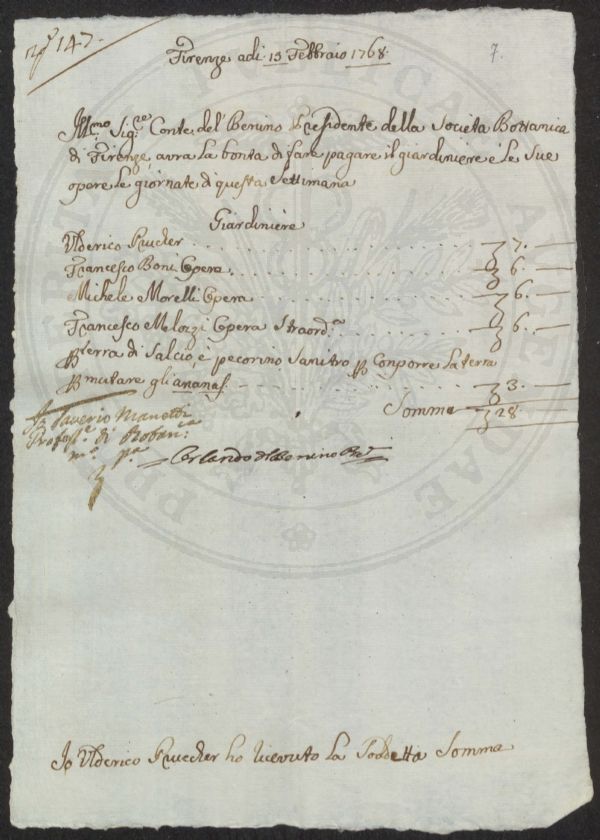 nº 147.
7.
Firenze adi 13 Febbraio 1768.
Ill.mo Sig.re Conte del Benino Presidente della Societa Bottanica
di Firenze, avra La bonta di fare pagare il giardiniere e Le Sue
opere Le giornate di questa Settimana
Giardiniere
Ulderico Prucker 7. —
Francesco Boni Opera 6. —
Michele Morelli Opera 6. —
Francesco Melozzi Opera Straord.a 6. —
p terra di Salcio, e pecorino Sanitro p Conporre La terra
p mutare gli ananas. 3. —
Somma 28. —
Saverio Manetti
Profess.e di Botan.ca
m.o p.a
Orlando del Benino
Io Ulderico Pruecker ho ricevuto La Soddetta Somma